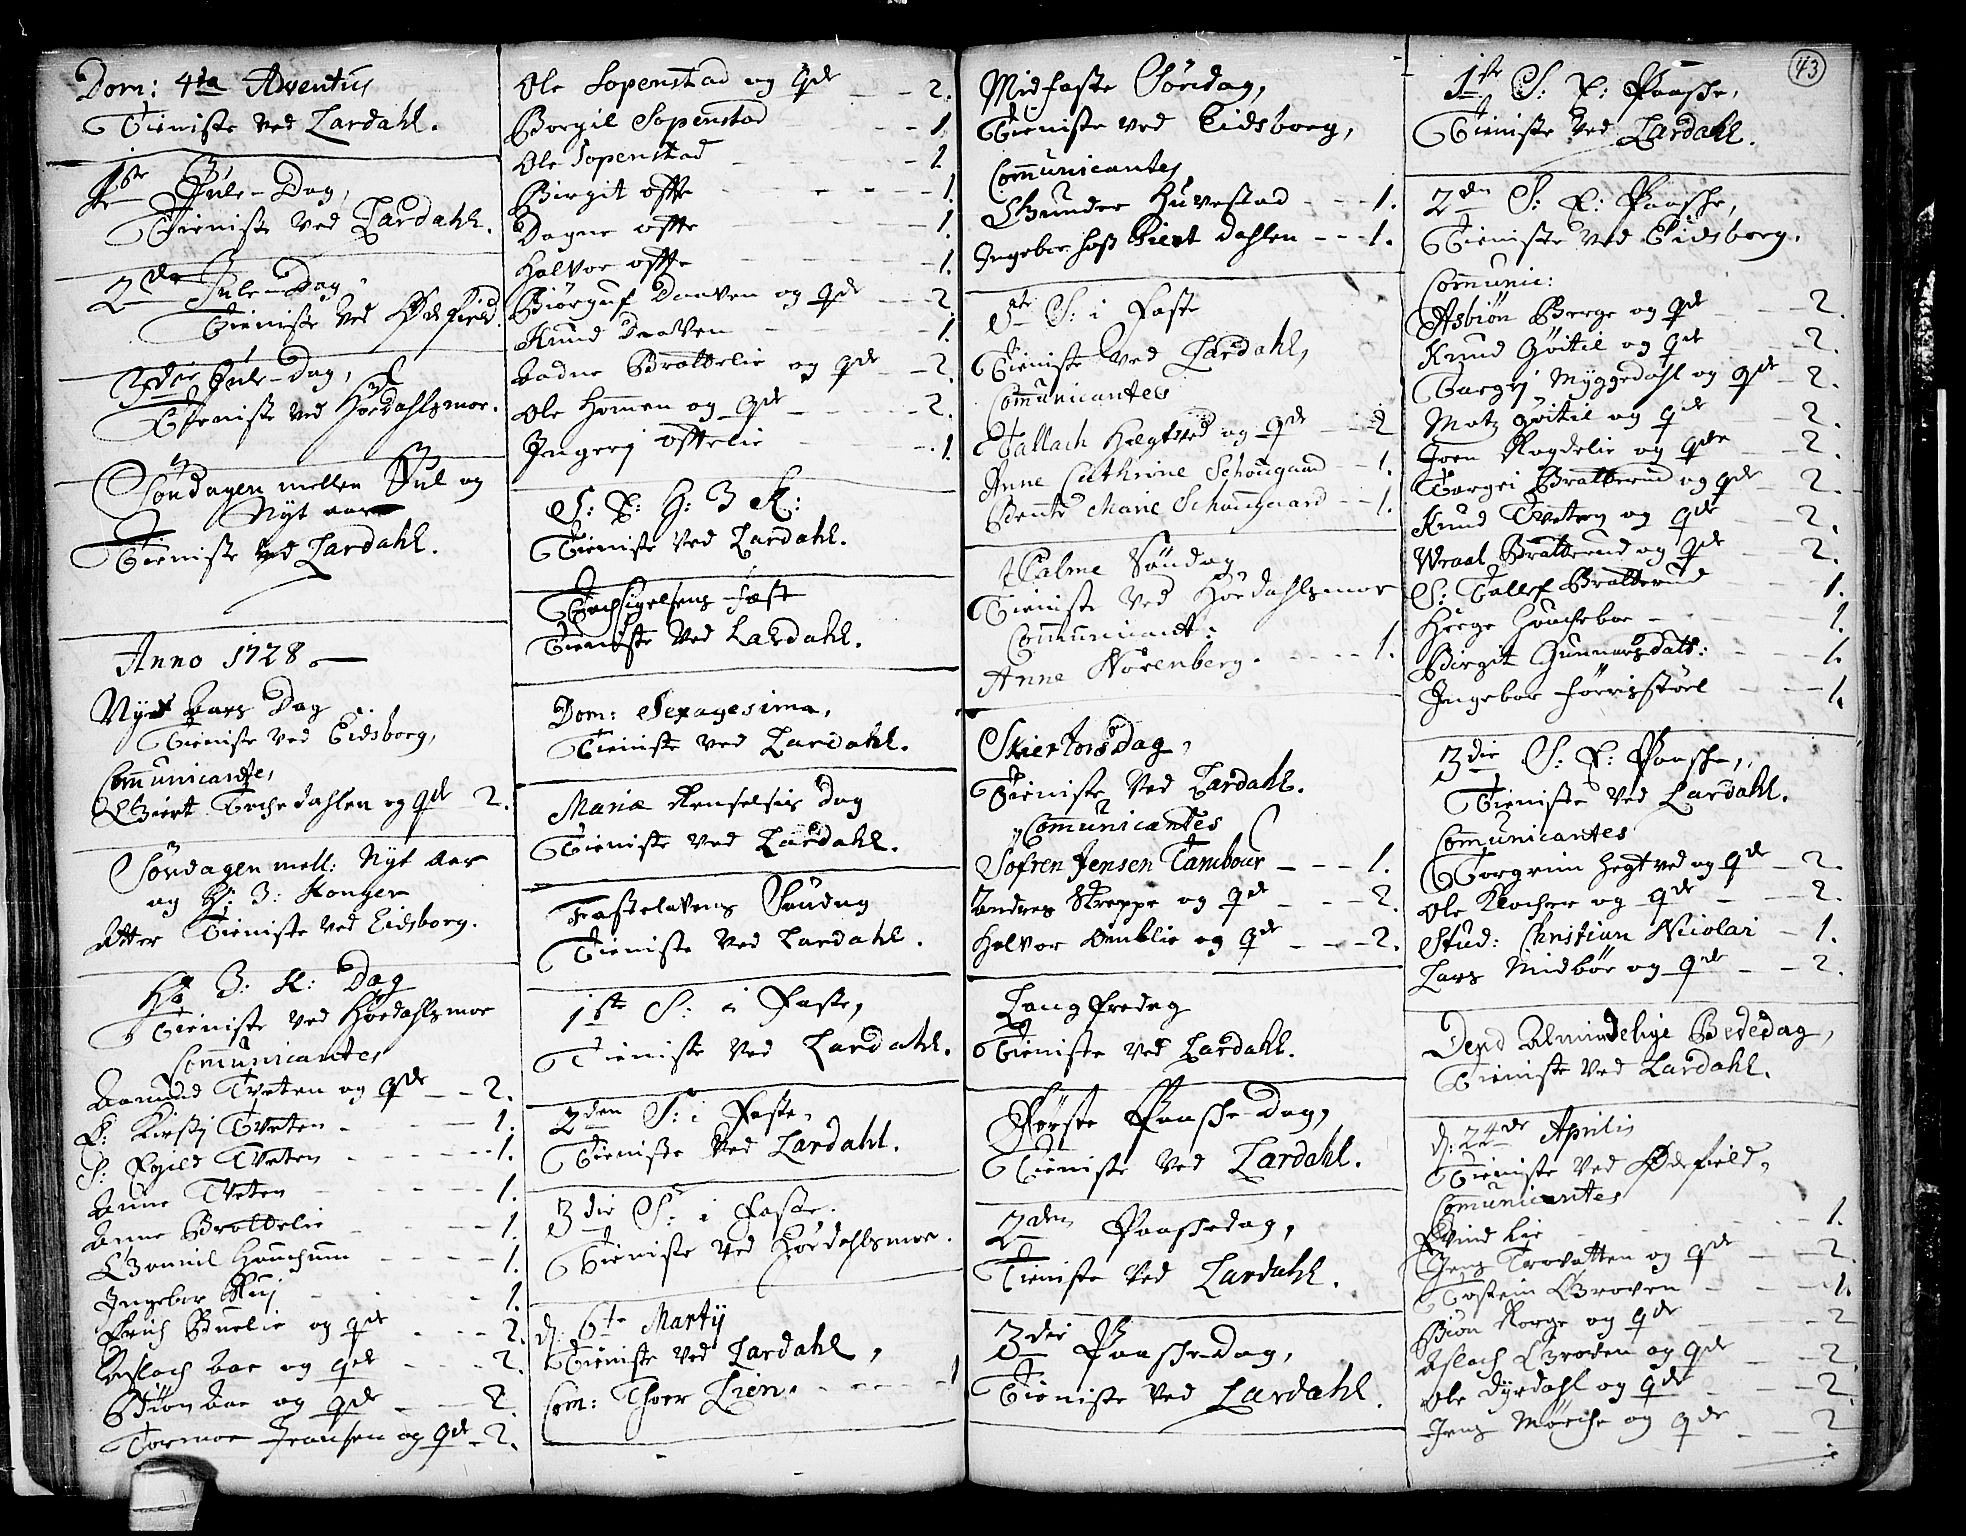 Dom: 4ta Adventus
Tieniste ved Lardahl.
1ste Jule-Dag,
Tieniste ved Lardahl.
2den Jule-Dag,
Tieniste ved Ødefield.
3die Jule-Dag,
Tieniste ved Høidahlsmoe.
Søndagen mellen Jul og
Nyt aar
Tieniste ved Lardahl.
Anno 1728
Nyt Aars Dag
Tieniste ved Eidsborg,
Communicante,
Giert Dahlen og qde 2.
Søndagen mell: Nyt Aar
og H: 3: Konger
Atter Tieniste ved Eidsborg.
H: 3: K: Dag
Tieniste ved Høidahlsmoe
Communicantes
Aamund Tveten og qde - - 2.
P: Kirstj Tveten - - - 1.
S: Egild Tveten - - - 1.
Anne Tveten - - - 1.
Anne Brattelie - - - 1.
Gunnil - - - 1.
Ingebor - - - 1.
Erich Buelie og qde - - - 2.
Aslach Aae og qde - - - 2.
Biøn Aae og qde - - - 2.
Tormoe Jronsen og qde - 2.
Ole Sopenstad og qde - - 2.
Borgil Sopenstad - - - 1.
Ole Sopenstad - - - 1
Birgit offte - - - 1.
Dagne offte - - - 1.
Halvor offte - - - 1.
Biørguf Daaven og qde - - 2.
Knud Daaven - - - 1.
Aadne Brattelie og qde - - 2.
Ole Homen og qde - - - 2.
Ingerj offtelie - - - 1.
S: E: H: 3 K:
Tieniste ved Lardahl.
Tachsigelsens Fæst
Tieniste ved Lardahl.
Dom: Sexagesima,
Tieniste ved Lardahl.
Mariæ Renselsis Dag
Tieniste ved Lardahl.
Fastelavens Søndag
Tieniste ved Lardahl.
1ste S: i Faste,
Tieniste ved Lardahl.
2den S: i Faste.
Tieniste ved Lardahl.
3die S: i Faste.
Tieniste ved Høidahlsmoe.
d: 6te Martij
Tieniste ved Lardahl,
Com: Thoer Lien. - - - 1
Midfaste Søndag,
Tieniste ved Eidsborg,
Communicantes
Gunder Huvestad - - - 1.
Ingebor hos Giert Dahlen - - - 1.
5te S: i Faste
Tieniste ved Lardahl,
Communicantes
Tallach Hægtved og qde - - 2
Anne Cathrine Schougaard - - 1.
Bente Marie Schougaard - - 1.
Palme Søndag
Tieniste ved Høidahlsmoe
Communicant:
Anne Nørenberg. - - - 1.
Skiertorsdag,
Tieniste ved Lardahl.
Communicantes
Sofren Jensen Tambour - - - 1.
Andres Skreppe og qde - - - 2.
Halvor Omblie og qde - - - 2.
Langfredag
Tieniste ved Lardahl.
Første Paasche-Dag,
Tieniste ved Lardahl.
2den Paaschedag,
Tieniste ved Lardahl.
3die Paasche-Dag,
Tieniste ved Lardahl.
43
1ste S: E: Paasche,
Tieniste ved Lardahl.
2den S: E: Paasche,
Tieniste ved Eidsborg.
Communic:
Asbiøn Berge og qde - - 2.
Knud Gøitil og qde - - 2.
Targej Myggedahl og qde - 2.
Matz Gøitil og qde - - 2.
Joen Rogdelie og qde - - 2.
Targei Bratterud og qde - - 2.
Knud Tveten og qde - - 2.
Wraal Bratterud og qde - - 2.
S: Tallef Bratterud - - - 1.
Herge - - - 1.
Birgit Gunnersdatt: - - - 1.
Ingebor - - - 1.
3die S: E: Paasche,
Tieniste ved Lardahl.
Communicantes
Torgrim Hegtved og qde - 2.
Ole Klocher og qde - - - 2.
Stud: Christian Nicolai - 1.
Lars Midbøe og qde - - 2.
Dend Almindelige Bededag,
Tieniste ved Lardahl.
d: 24de Aprilis
Tieniste ved Ødefield,
Communicantes
Eivind Lie - - - 1.
Jens Trovatten og qde - - 2.
Tostein Groven - - - 1.
Biøn Norge og qde - - 2
Aslach Groven og qde - - 2.
Ole Dyrdahl og qde - - 2
Jens Mørche og qde - - 2